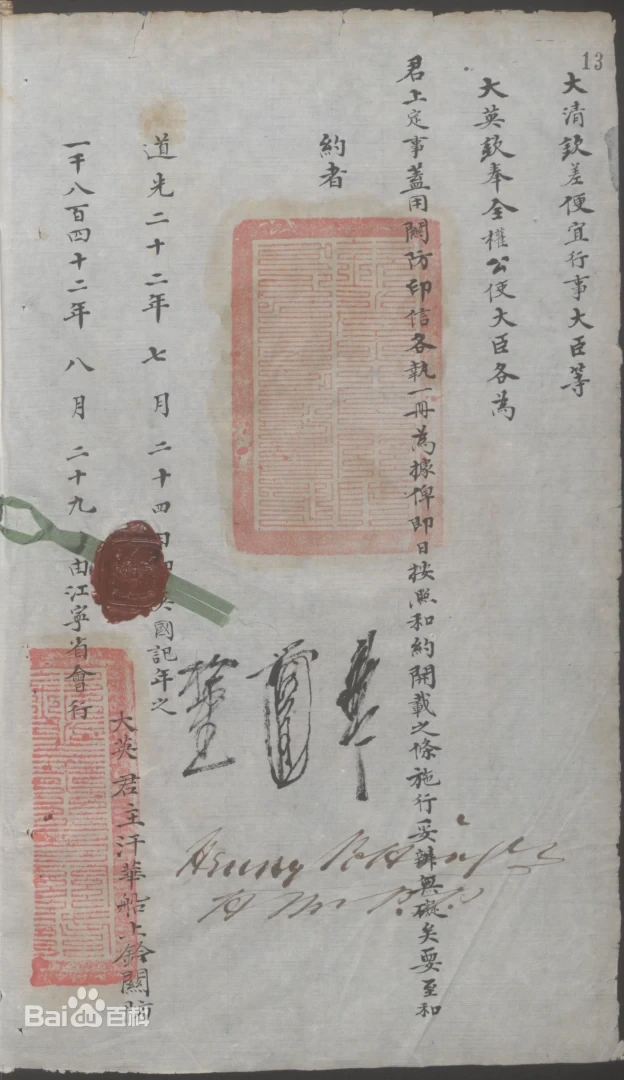 13
大清欽差便宜行事大臣等
大英欽奉全權公使大臣各為
君上定事蓋用關防印信各執一冊為據俾即日按照和約開載之條施行妥辦無礙矣要至和
約者
道光二十二年七月二十四日即英國記年之
一千八百四十二年八月二十九日由江寧省會行
大英君主汗華船上鈐關防
Henry Pottinger
Baidu百科